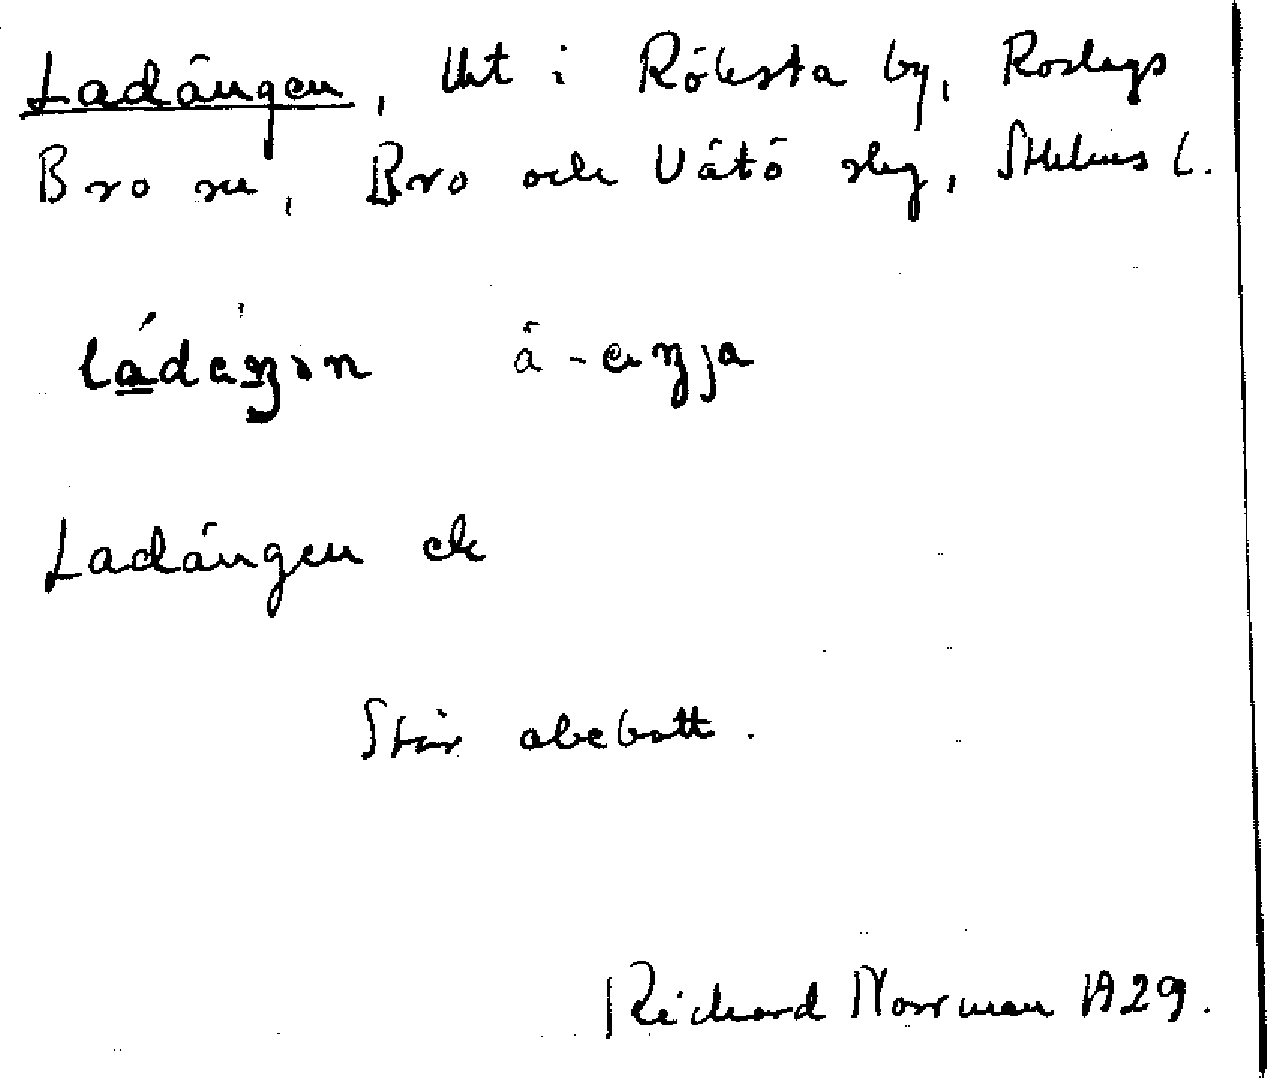 Ladängen, Uht i Rökesta by, Roslags
Bro sn, Bro och Vätö slg, Sthlms l.
ládäŋən å -eŋja
Ladängen ek
Står obebott.
Richard Norrman 1929.